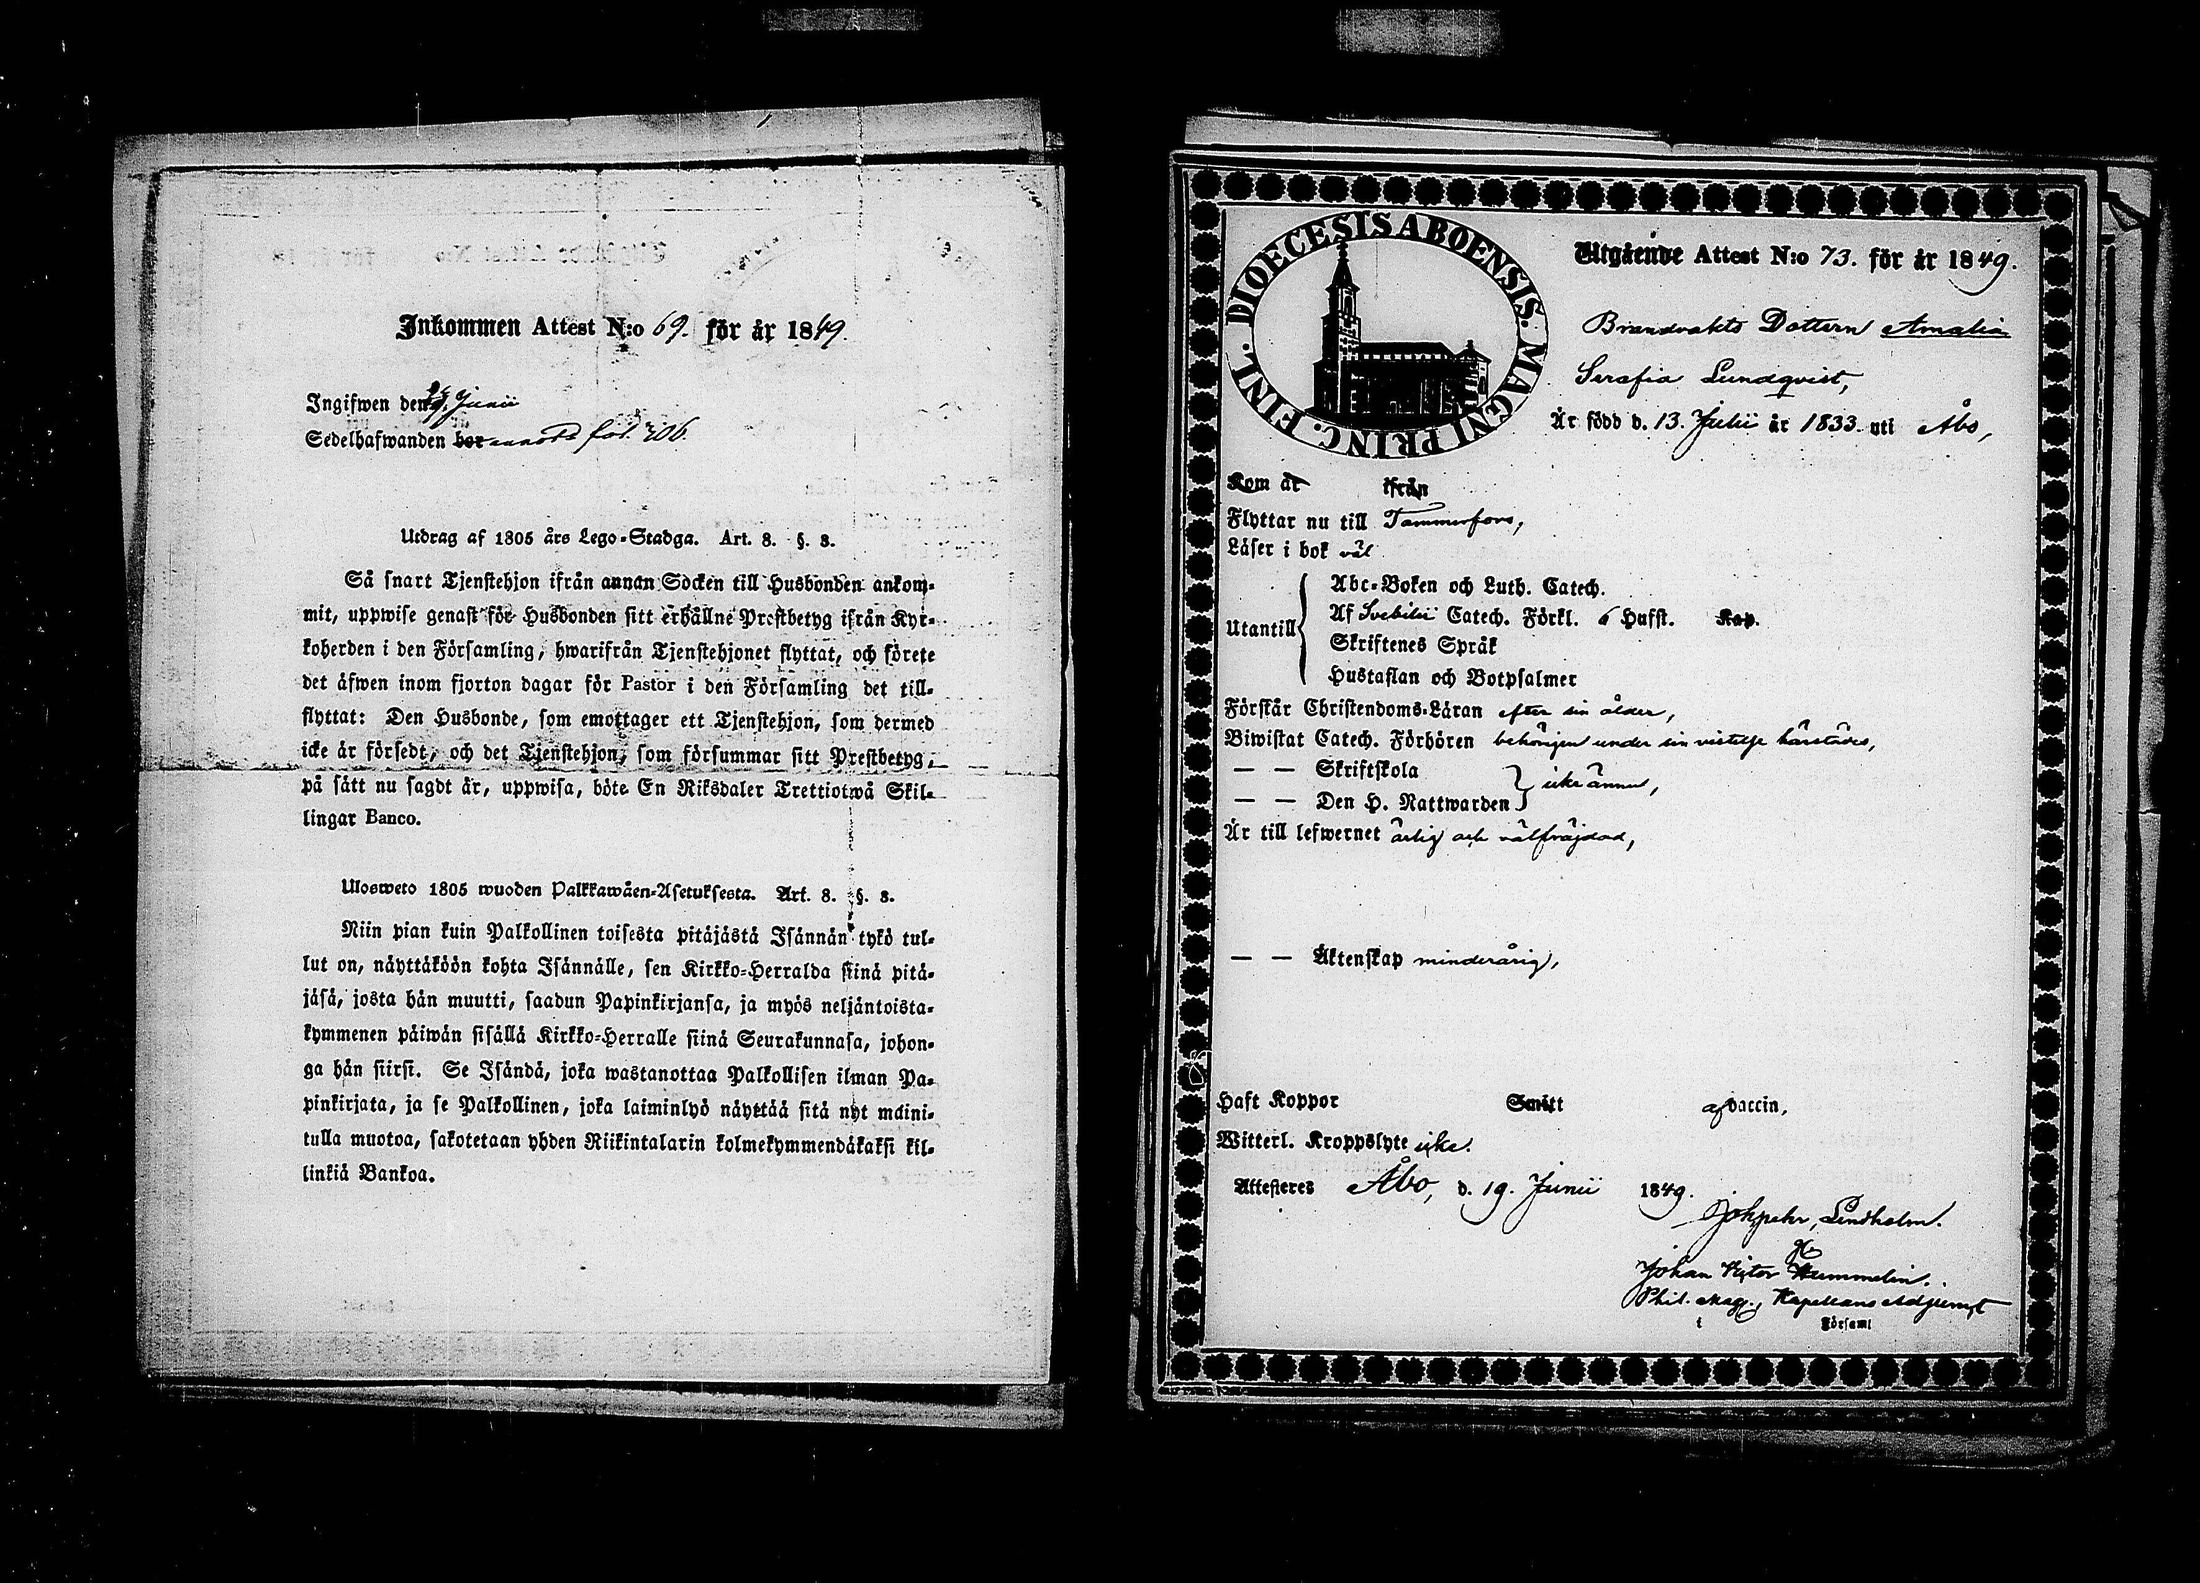 Inkommen Attest N:o 69. för år 1849.
Ingifwen den Junii
Sedelhafwanden bor annots fol. 206.
Utdrag af 1805 års Lego-Stadga. Art. 8. §. 3.
Så snart Tjenstehjon ifrån annan Socken till Husbonden ankom-
mit, uppwise genast för Husbonden sitt erhållne Prestbetyg ifrån Kyr-
koherden i den Församling, hwarifrån Tjenstehjonet flyttat, och förete
det äfwen inom fjorton dagar för Pastor i den Församling det till-
flyttat: Den Husbonde, som emottager ett Tjenstehjon, som dermed
icke är försedt, och det Tjenstehjon, som försummar sitt Prestbetyg,
på sätt nu sagdt är, uppwisa, böte En Riksdaler Trettiotwå Skil-
lingar Banco.
Ulosweto 1805 wuoden Palkkawäen-Asetuksesta. Art. 8. §. 3.
Niin pian kuin Palkollinen toisesta pitäjästä Isännän tykö tul-
lut on, näyttäköön kohta Isännälle, sen Kirkko-Herralda siinä pitä-
jäsä, josta hän muutti, saadun Papinkirjansa, ja myös neljäntoista-
kymmenen päiwän sisällä Kirkko-Herralle siinä Seurakunnasa, johon-
ga hän siirsi. Se Isändä, joka wastanottaa Palkollisen ilman Pa-
pinkirjata, ja se Palkollinen, joka laiminlyö näyttää sitä nyt maini-
tulla muotoa, sakotetaan yhden Riikintalarin kolmekymmendäkaksi kil-
linkiä Bankoa.
DIOECESIS ABOENSIS. MAGNI PRINC. FINL.
Utgående Attest N:o 73. för år 1849.
Brandvakts Dottern Amalia
Serafia Lundqvist,
Är född d. 13. Julii år 1833. uti Åbo,
Kom år ifrån
Flyttar nu till Tammerfors,
Läser i bok väl
Abc-Boken och Luth. Catech.
Utantill Af Svebilii Catech. Förkl. 6 Hufst. Kap.
Skriftenes Språk
Hustaflan och Botpsalmer
Förstår Christendoms-Läran efter sin ålder,
Biwistat Catech. Förhören behörigen under sin vistelse härstädes,
— — Skriftskola
— — Den H. Nattwarden icke ännu,
Är till lefwernet ärlig och välfräjdad,
— — Äktenskap minderårig,
Haft Koppor Smitt af vaccin,
Witterl. Kroppslyte icke.
Attesteres Åbo, d. 19. Junii 1849.
Joh. Lindholm.
Johan Victor Hummelin.
Phil. Mag., Kapellans Adjunct
i Församl